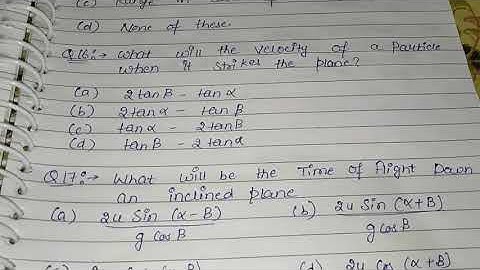 (c) Range in
(d) None of these.
Q16:→ What will the velocity of a particle
when it strikes the plane?
(a) 2tanβ - tanα
(b) 2tanα - tanβ
(c) tanα - 2tanβ
(d) tanβ - 2tanα
Q17:→ What will be the Time of flight Down
an inclined plane
(a) 2u Sin (α-β) / g Cosβ (b) 2u Sin (α+β) / g Cosβ
(d) 2u Cos (α+β)